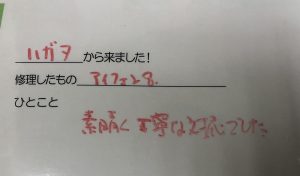 ハガヌから来ました！
修理したもの アイフォン8.
ひとこと
素早く丁寧な対応でした